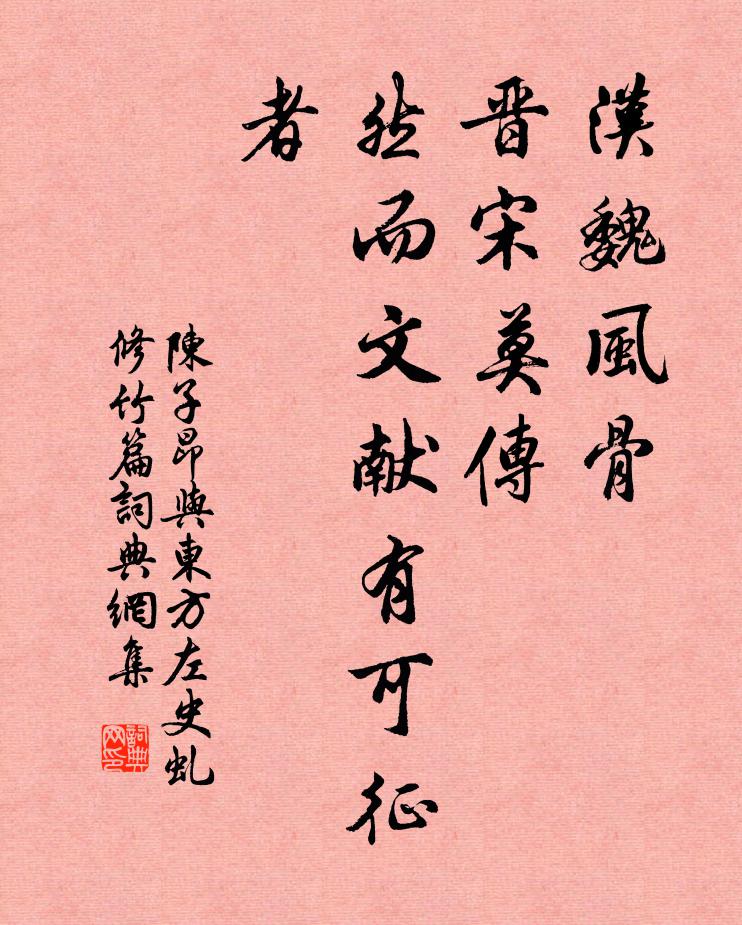 漢魏風骨
晋宋莫傳
然而文献有可征
者
陳子昂與東方左史虬
修竹篇詞典網集
詞典网印